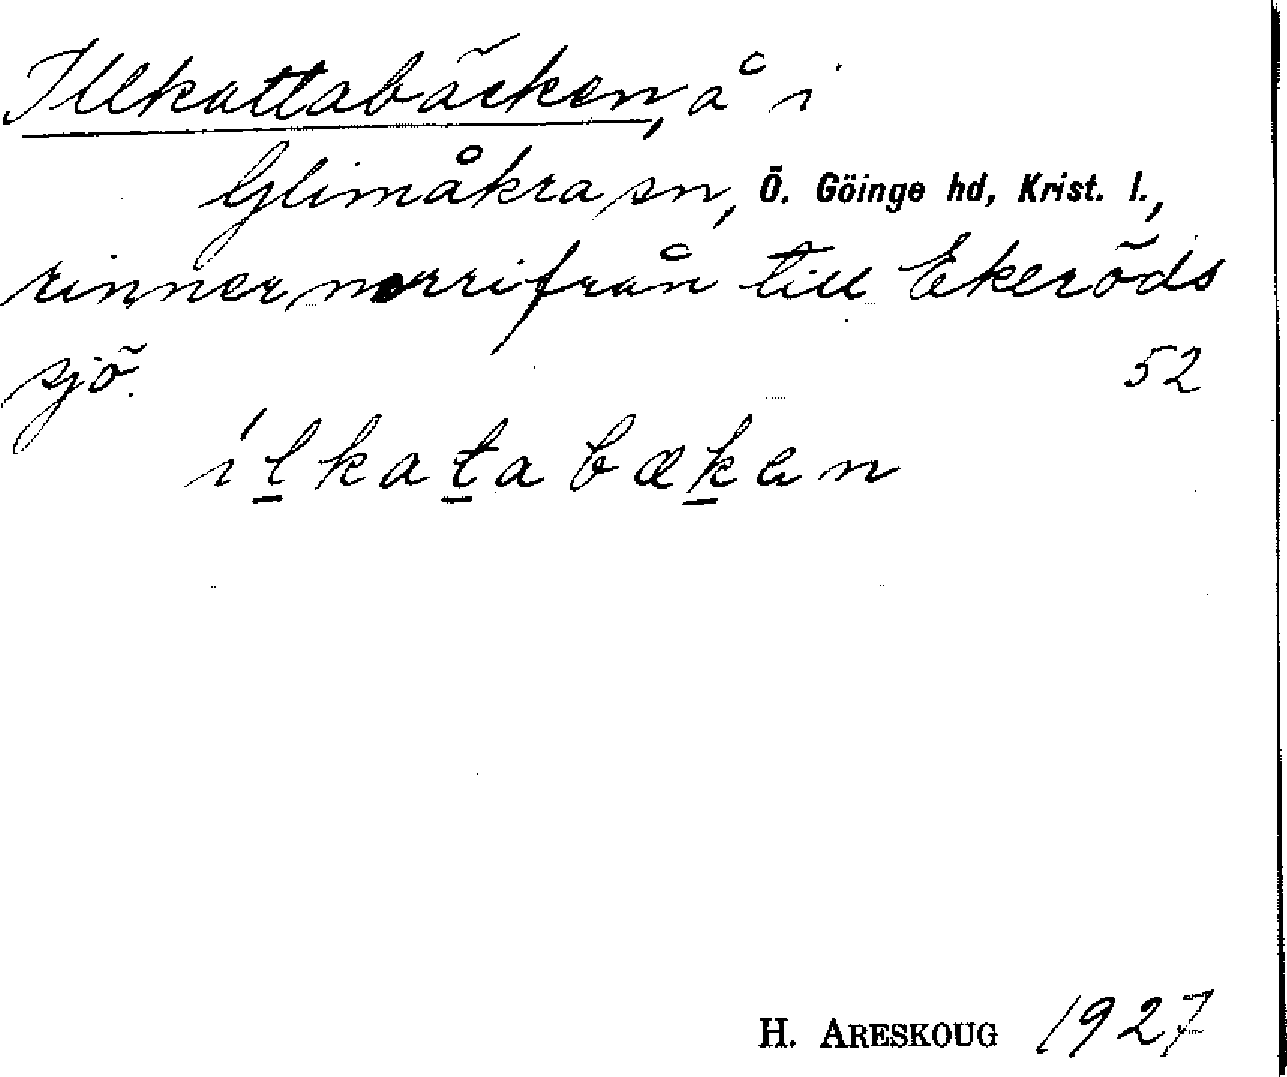 Illkattabäcken, å i
Glimåkra sn, Ö. Göinge hd, Krist. l.,
rinner norrifrån till Ekeröds
sjö. 52
ílkatabæken
H. ARESKOUG 1927